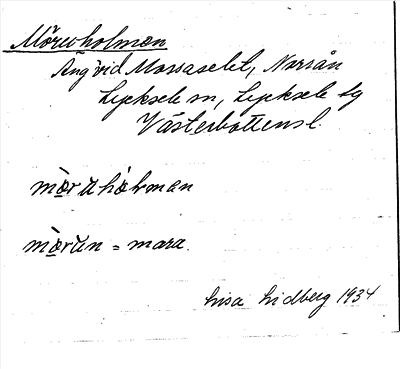 Möruholmen
Äng vid Mossaselet, Norrån
Lycksele sn, Lycksele lg
Västerbottensl.
mòruhɷlman
mòrun = mara.
Lisa Lidberg 1934